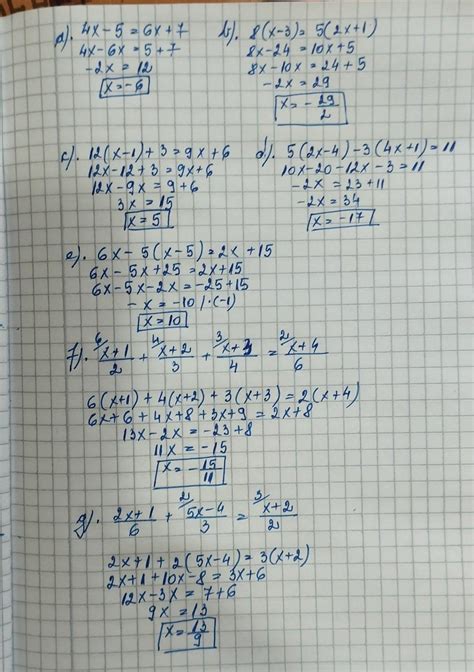 a). 4x-5=6x+7
4x-6x=5+7
-2x=12
x=-6
b). 8(x-3)=5(2x+1)
8x-24=10x+5
8x-10x=24+5
-2x=29
x=-29/2
c). 12(x-1)+3=9x+6
12x-12+3=9x+6
12x-9x=9+6
3x=15
x=5
d). 5(2x-4)-3(4x+1)=11
10x-20-12x-3=11
-2x=23+11
-2x=34
x=-17
e). 6x-5(x-5)=2x+15
6x-5x+25=2x+15
6x-5x-2x=-25+15
-x=-10/·(-1)
x=10
f). 6/ (x+1)/2 + 4/ (x+2)/3 + 3/ (x+3)/4 = 2/ (x+4)/6
6(x+1)+4(x+2)+3(x+3)=2(x+4)
6x+6+4x+8+3x+9=2x+8
13x-2x=-23+8
11x=-15
x=-15/11
g). (2x+1)/6 + 2/ (5x-4)/3 = 3/ (x+2)/2
2x+1+2(5x-4)=3(x+2)
2x+1+10x-8=3x+6
12x-3x=7+6
9x=13
x=13/9